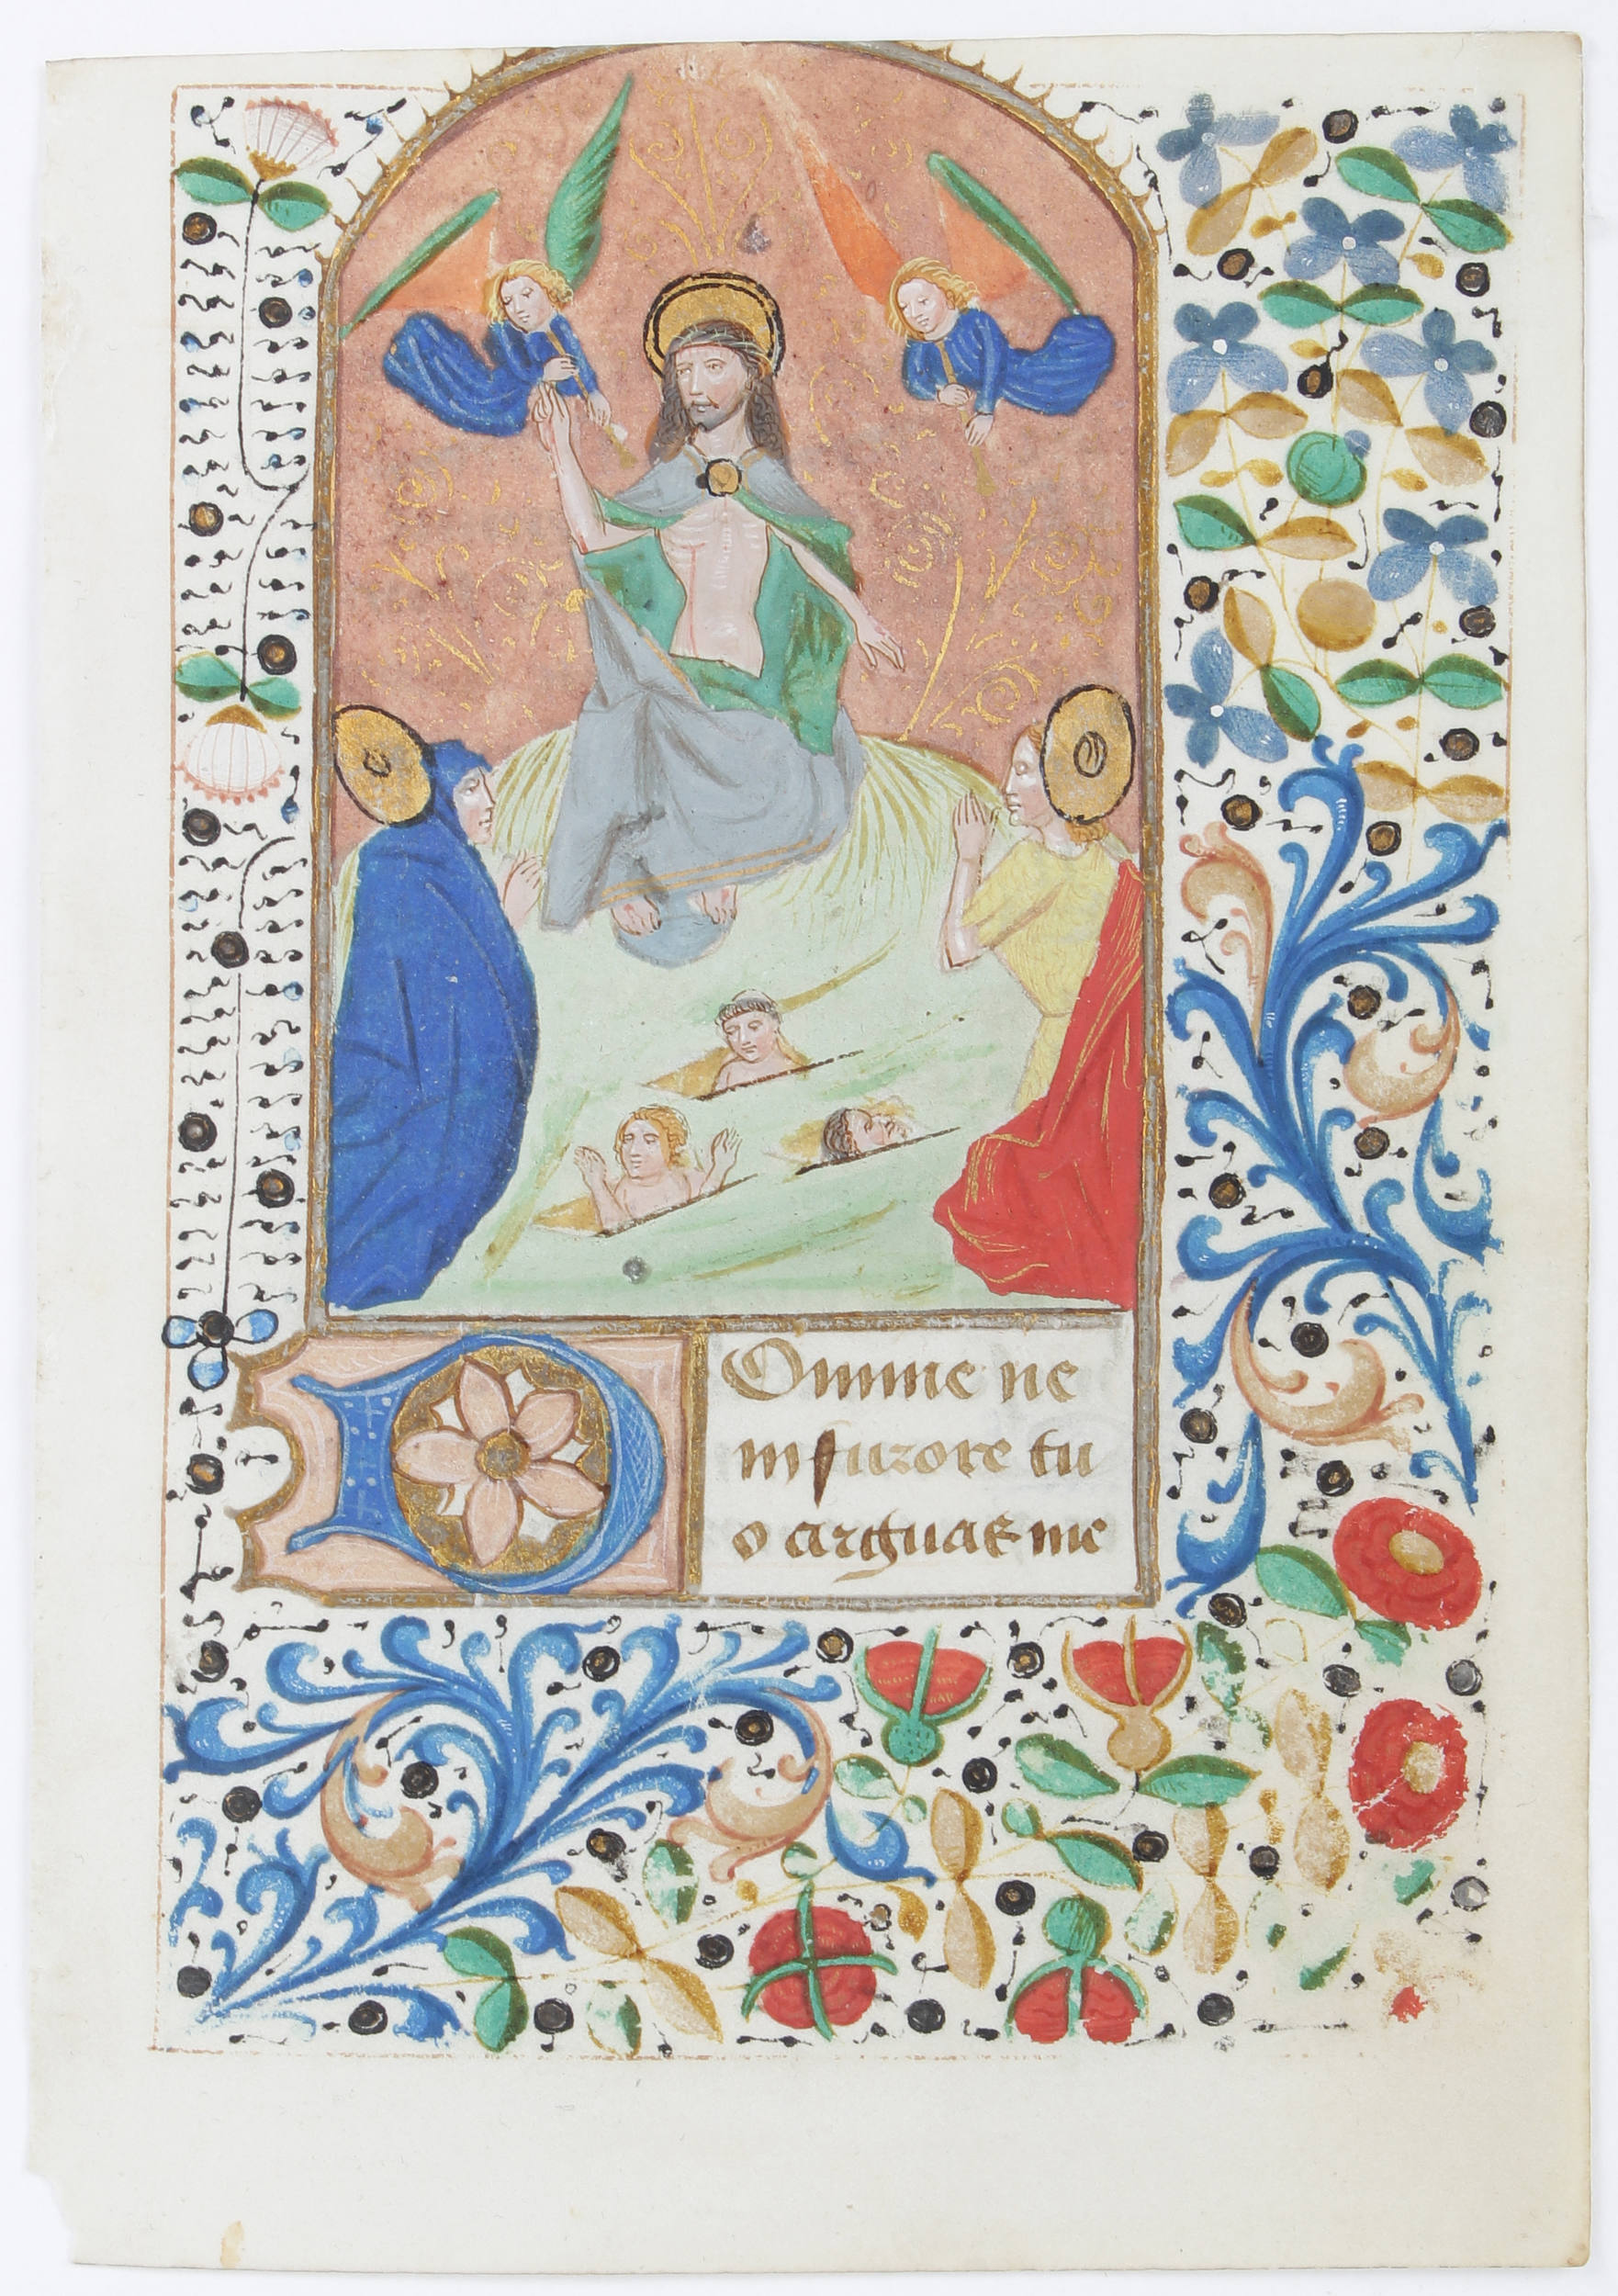 DOmine ne
in furore tu
o arguas me